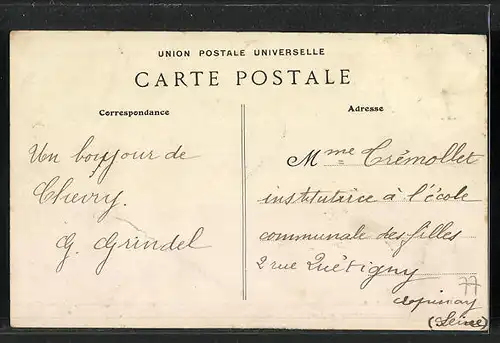 UNION POSTALE UNIVERSELLE
CARTE POSTALE
Correspondance
Adresse
Un bonjour de
Chevry.
G. Grindel
Mme Trémollet
institutrice à l'école
communale des filles
2 rue Quétigny
Epinay
(Seine)
77